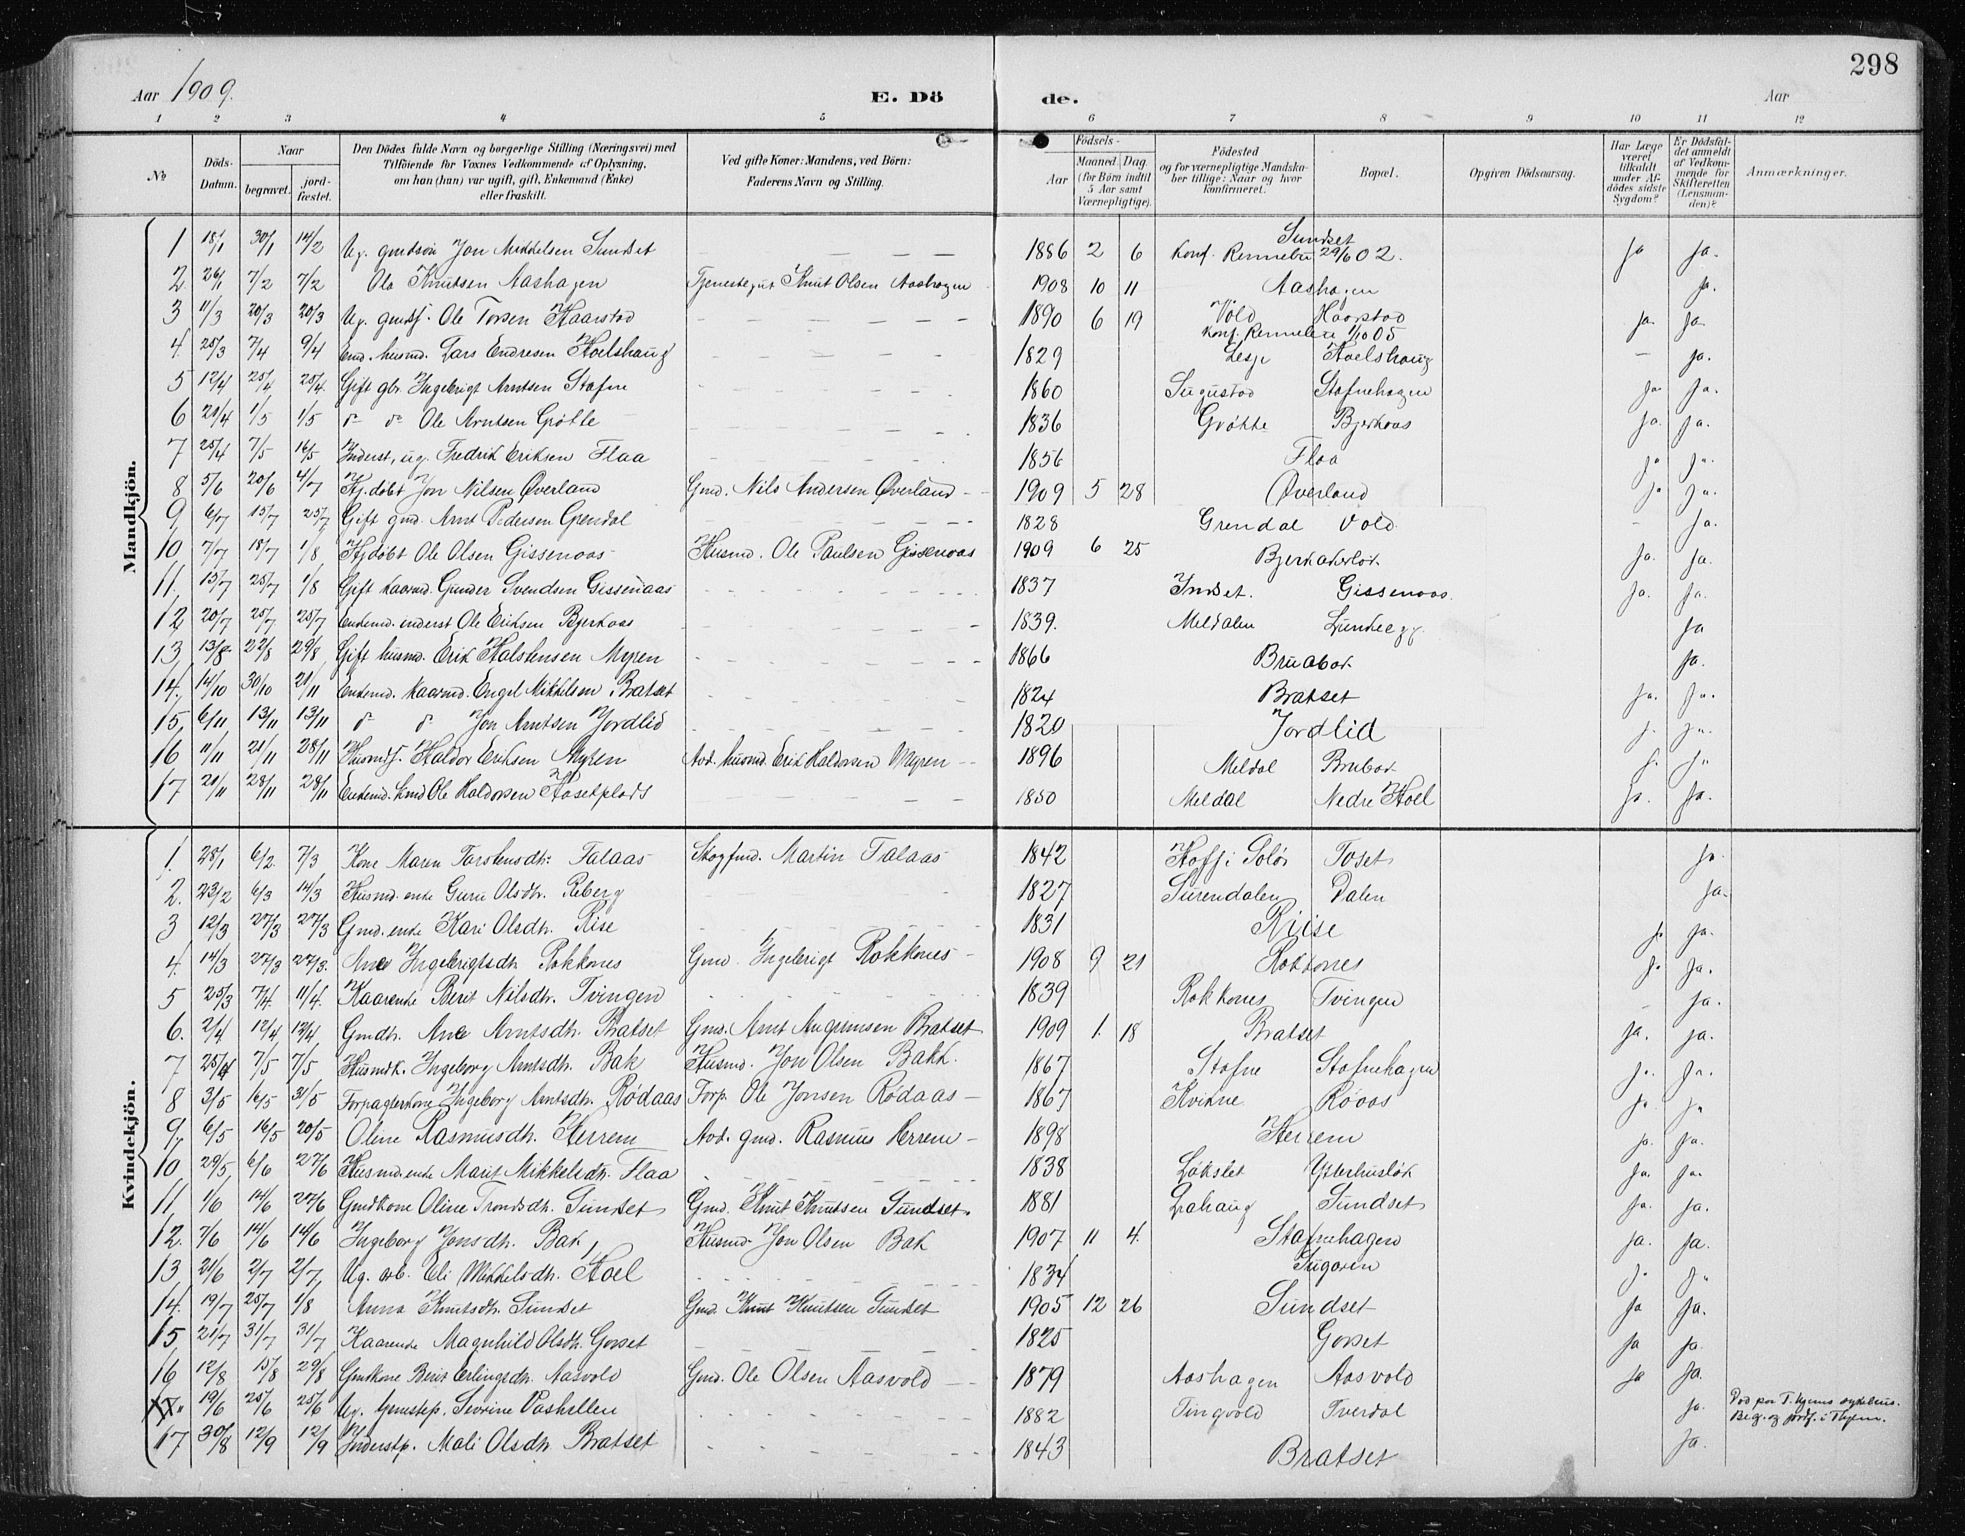 298
Aar 1909.
E. Dö de.
Aar
1 2 3 4 5 6 7 8 9 10 11 12
No
Döds-Datum.
Naar
begravet.
jord-fæstet.
Den Dödes fulde Navn og borgerlige Stilling (Næringsvei) med Tilföiende for Voxnes Vedkommende af Oplysning, om han (hun) var ugift, gift, Enkemand (Enke) eller fraskilt.
Ved gifte Koner: Mandens, ved Börn: Faderens Navn og Stilling.
Födsels-
Aar
Maaned Dag
(for Börn indtil 5 Aar samt Værnepligtige).
Födested og for værnepligtige Mandskaber tillige: Naar og hvor konfirmeret.
Bopæl.
Opgiven Dödsaarsag.
Har Læge været tilkaldt under Afdödes sidste Sygdom?
Er Dödsfaldet anmeldt af Vedkommende for Skifteretten (Lensmanden)?
Anmærkninger.
Mandkjön.
1 18/1 30/1 14/2 Ug. gmdsön Jon Mikkelsen Sundset 1886 2 6 Sundset Konf. Rennebu 29/6 02. Ja Ja.
2 26/1 7/2 7/2 Ola Knutsen Aashagen Tjenestegut Knut Olsen Aashagen 1908 10 11 Aashagen Ja.
3 11/3 20/3 20/3 Ug. gmds. Ole Torsen Haarstad 1890 6 19 Vold Haarstad Konf. Rennebu 1/10 05 Ja. Ja.
4. 25/3 7/4 9/4 Enk. husmd. Lars Endresen Hoelshaug 1829 Lesje Hoelshaug – Ja.
5 12/4 25/4 25/4 Gift gbr. Ingebrigt Arntsen Stafne 1860 Sugustad Stafnehagen Ja. Ja.
6 21/4 1/5 1/5 do do Ole Arntsen Grøtte 1836 Grøtte Bjerkaas Ja. Ja.
7 25/4 7/5 16/5 Inderst, ug. Fredrik Eriksen Flaa 1856 Flaa Ja Ja.
8 5/6 20/6 4/7 Hj.døbt Jon Nilsen Øverland Gmd. Nils Andersen Øverland 1909 5 28 Øverland Ja Ja.
9 6/7 15/7 25/7 Gift gmd. Arnt Pedersen Grendal 1828 Grendal Vold – Ja.
10 7/7 18/7 1/8 Hj.døbt Ole Olsen Gissenaas Husmd. Ole Paulsen Gissenaas 1909 6 25 Ja. Ja.
11, 15/7 25/7 1/8 Gift kaarmd. Gunder Svendsen Gissenaas 1837 Indset. Gissenaas. Ja. Ja.
12 20/7 25/7 25/7 Enkemd. inderst Ole Eriksen Bjerkaas 1839. Meldalen Ja
13, 13/8 22/8 29/8 Gift husmd. Erik Halstensen Myren 1866 Ja.
14. 14/10 30/10 21/11 Enkemd. kaarmd. Engel Mikkelsen Bratset 1824 Bratset Ja. Ja.
15, 6/11 13/11 13/11 do do Jon Arntsen Jordlid 1820 Jordlid J. Ja.
16 11/11 21/11 28/11 Husmds. Haldor Eriksen Myren Avd. husmd. Erik Haldorsen Myren 1896 Meldal J. Ja
17 21/11 28/11 28/11 Enkemd. Ole Haldorsen Hosetplads 1850 Meldal Nedre Hoel Ja. Ja.
Kvindekjön.
1. 28/1 6/2 7/3 Kone Maren Torstensdtr. Falaas Skogfmd. Martin Falaas 1842 Hof i Solør Toset Ja.
2. 23/2 6/3 14/3 Husmd. enke Guru Olsdtr. Reberg 1827 Surendalen Dalen Ja.
3 12/3 27/3 27/3 Gmd. enke Kari Olsdtr. Rise 1831 Riise J. Ja.
4. 14/3 27/3 27/3. Ane Ingebrigtsdtr. Rokkones Gmd. Ingebrigt Rokkones 1908 9 21 Rokkones J. Ja.
5 25/3 7/4 11/4. Kaarenke Berit Nilsdtr. Tvingen 1839 Rokkones Tvingen – Ja.
6. 2/4 12/4 12/4 Gmdtr. Ane Arntsdtr. Bratset Gmd. Arnt Bratset 1909 1. 18 Bratset Ja. Ja.
7 25/4 7/5 7/5 Husmdk. Ingeborg Arntsdtr. Bak Husmd. Jon Olsen Bakk. 1867 Stafne Stafnehagen Ja. Ja.
8 3/5 16/5 31/5 Forpagterkone Ingeborg Arntsdtr. Rødaas Forp. Ole Jonsen Rødaas 1867 Kvikne Røaas Ja. Ja
9, 6/5 16/5 20/5 Oline Rasmusdtr. Herrem Avd. gmd. Rasmus Herrem 1898 Herrem Ja. Ja.
10 29/5 6/6 27/6 Husmd.enke Marit Mikkelsdtr. Flaa 1838 Løkslet Ja. Ja.
11, 1/6 14/6 27/6 Gmdkone Oline Trondsdtr. Sundset Gmd. Knut Knutsen Sundset. 1881 Lahaug Sundset Ja. Ja.
12. 7/6 14/6 14/6 Ingeborg Jonsdtr. Bak Husmd. Jon Olsen Bak 1907 11 4. Stafnehagen Ja. Ja.
13 21/6 2/7 2/7, Ug. arb. Eli Mikkelsdtr. Hoel 1834 J. J.
14. 19/7 25/7 1/8 Anna Knutsdtr. Sundset Gmd. Knut Knutsen Sundset 1905 12 26 Sundset Ja Ja.
15 21/7 31/7 31/7 Kaarenke Magnhild Olsdtr. Gorset 1825 Gorset Ja Ja.
16 12/8 15/8 29/8 Gmdkone Berit Erlingsdtr. Aasvold Gmd. Ole Olsen Aasvold 1879 Aashagen Aasvold Ja Ja.
19/6 25/6 25/6 Ug. tjenestep. Sevrine Vashellen 1882 Tingvold Tverdal Ja. Død paa T.hjems sykehus. Beg. og jordf. i Thjem.
17 30/8 12/9 12/9 Inderstp. Mali Olsdtr. Bratset 1843 Bratset Ja.